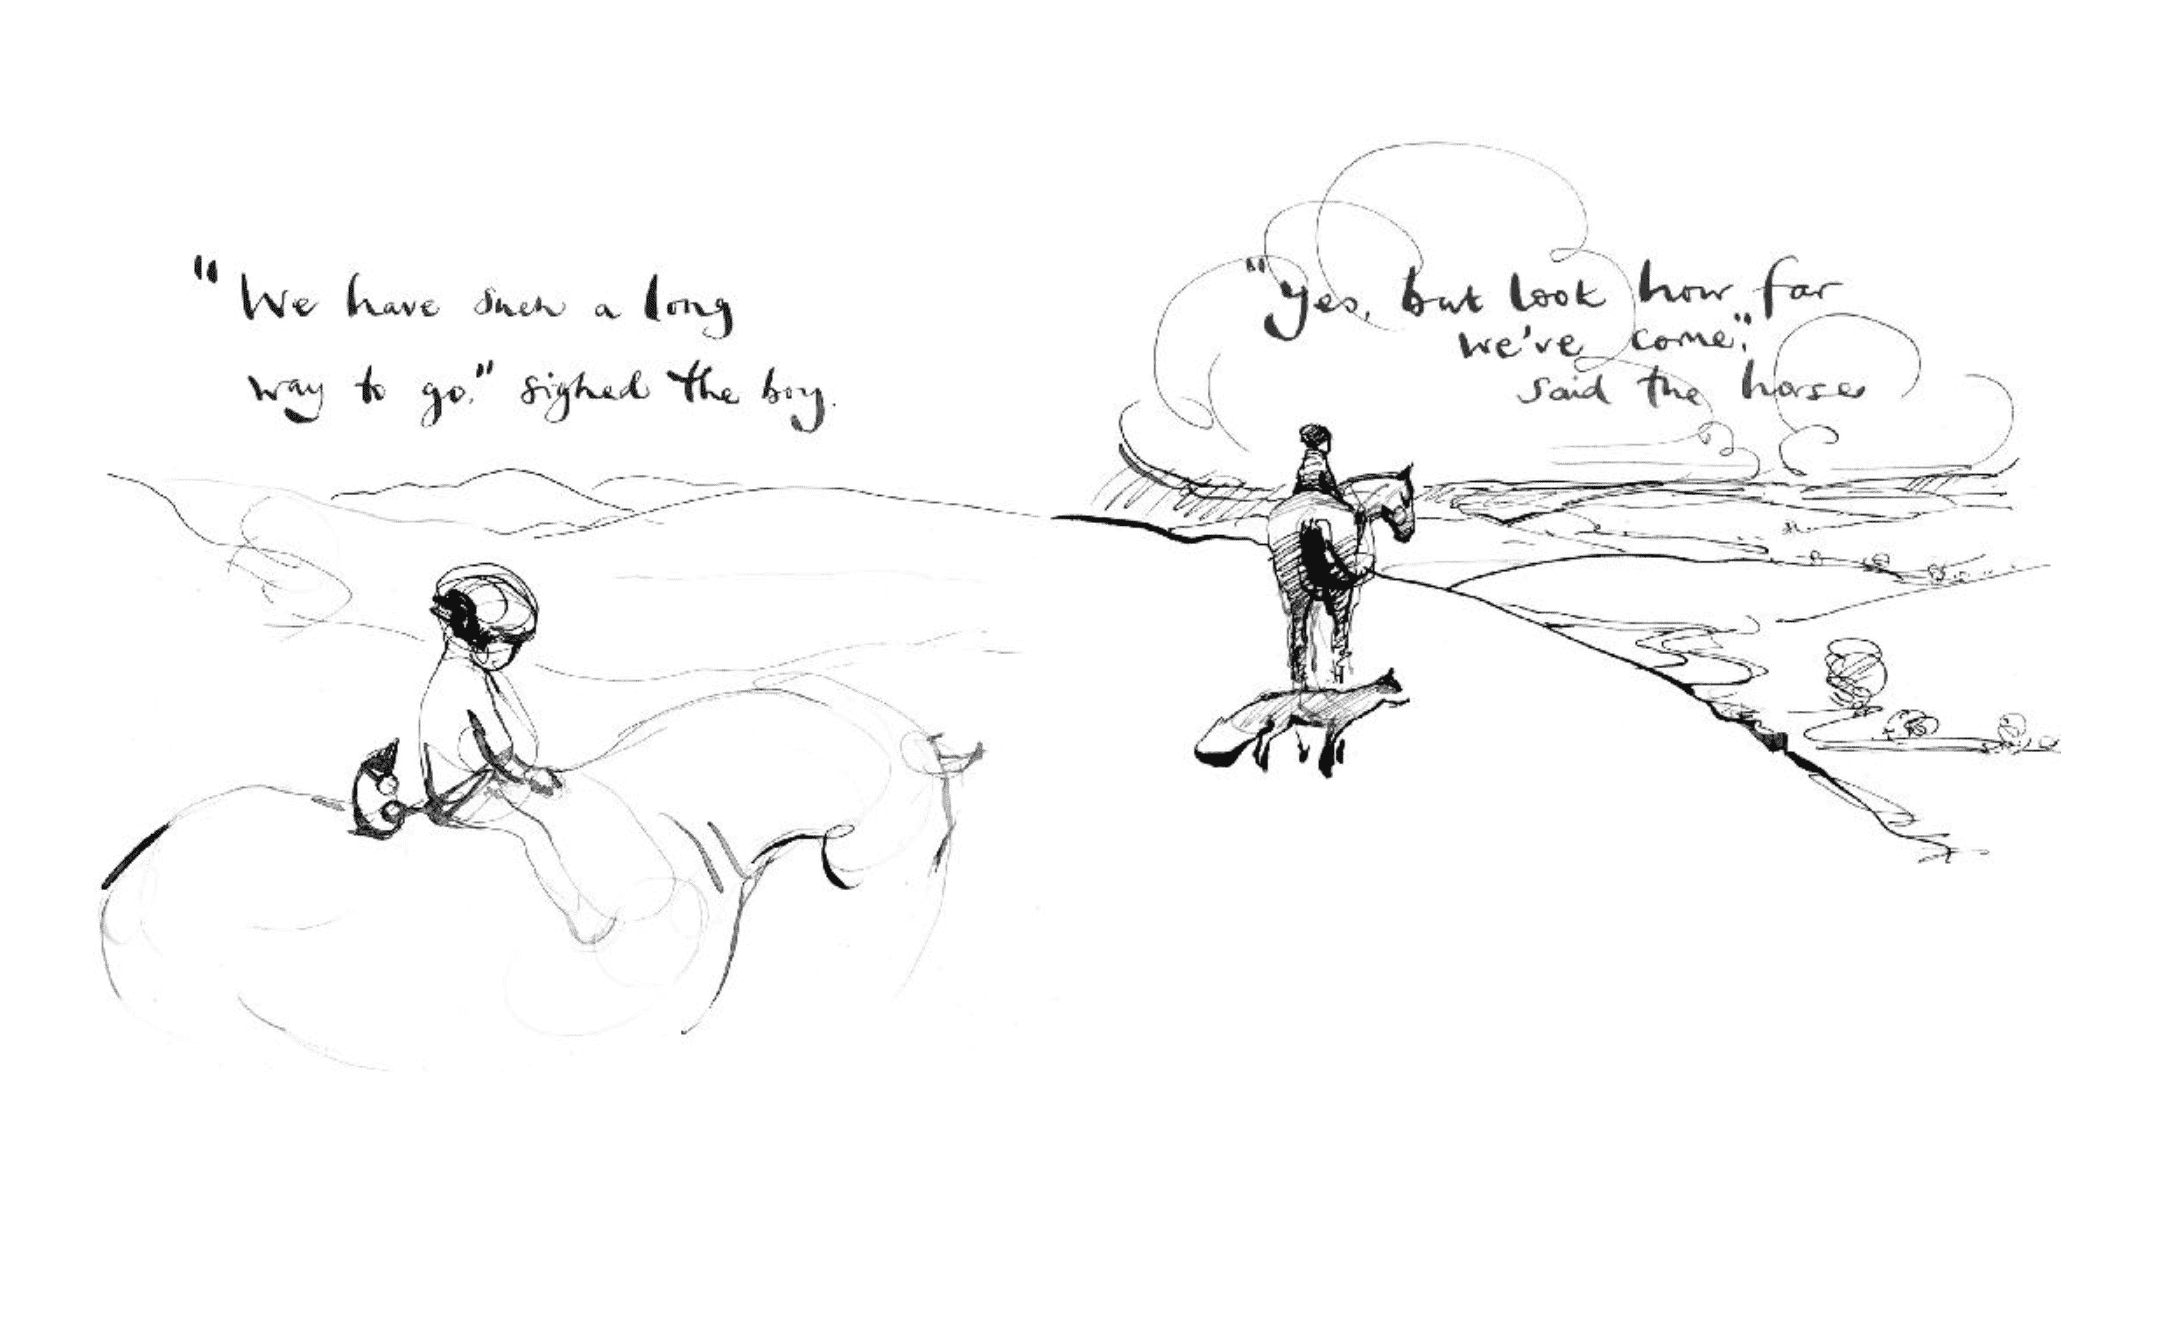 "We have such a long
way to go." sighed the boy.
"Yes, but look how far
we've come."
said the horse